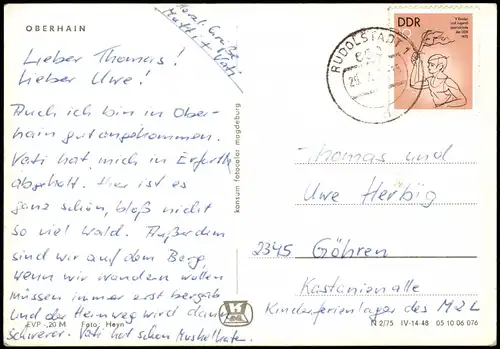 OBERHAIN
Herzl. Grüße
Mutti + Vati
Lieber Thomas!
Lieber Uwe!
Auch ich bin in Ober-
hain gut angekommen.
Vati hat mich in Erfurth
abgeholt. Hier ist es
ganz schön, bloß nicht
so viel Wald. Außerdem
sind wir auf dem Berg,
wenn wir wandern wollen
müssen immer erst bergab
und der Heimweg wird dann
schwerer. Vati hat schon Muskelkater.
EVP -,20 M Foto: Heyn
konsum fotoatlas magdeburg
RUDOLSTADT 1
682
DDR
V. Kinder-
und Jugend-
spartakiade
der DDR
1975
Thomas und
Uwe Herbig
2345 Göhren
Kastanienalle
Kinderferienlager des MdL
N 2/75 IV-14-48 05 10 06 076